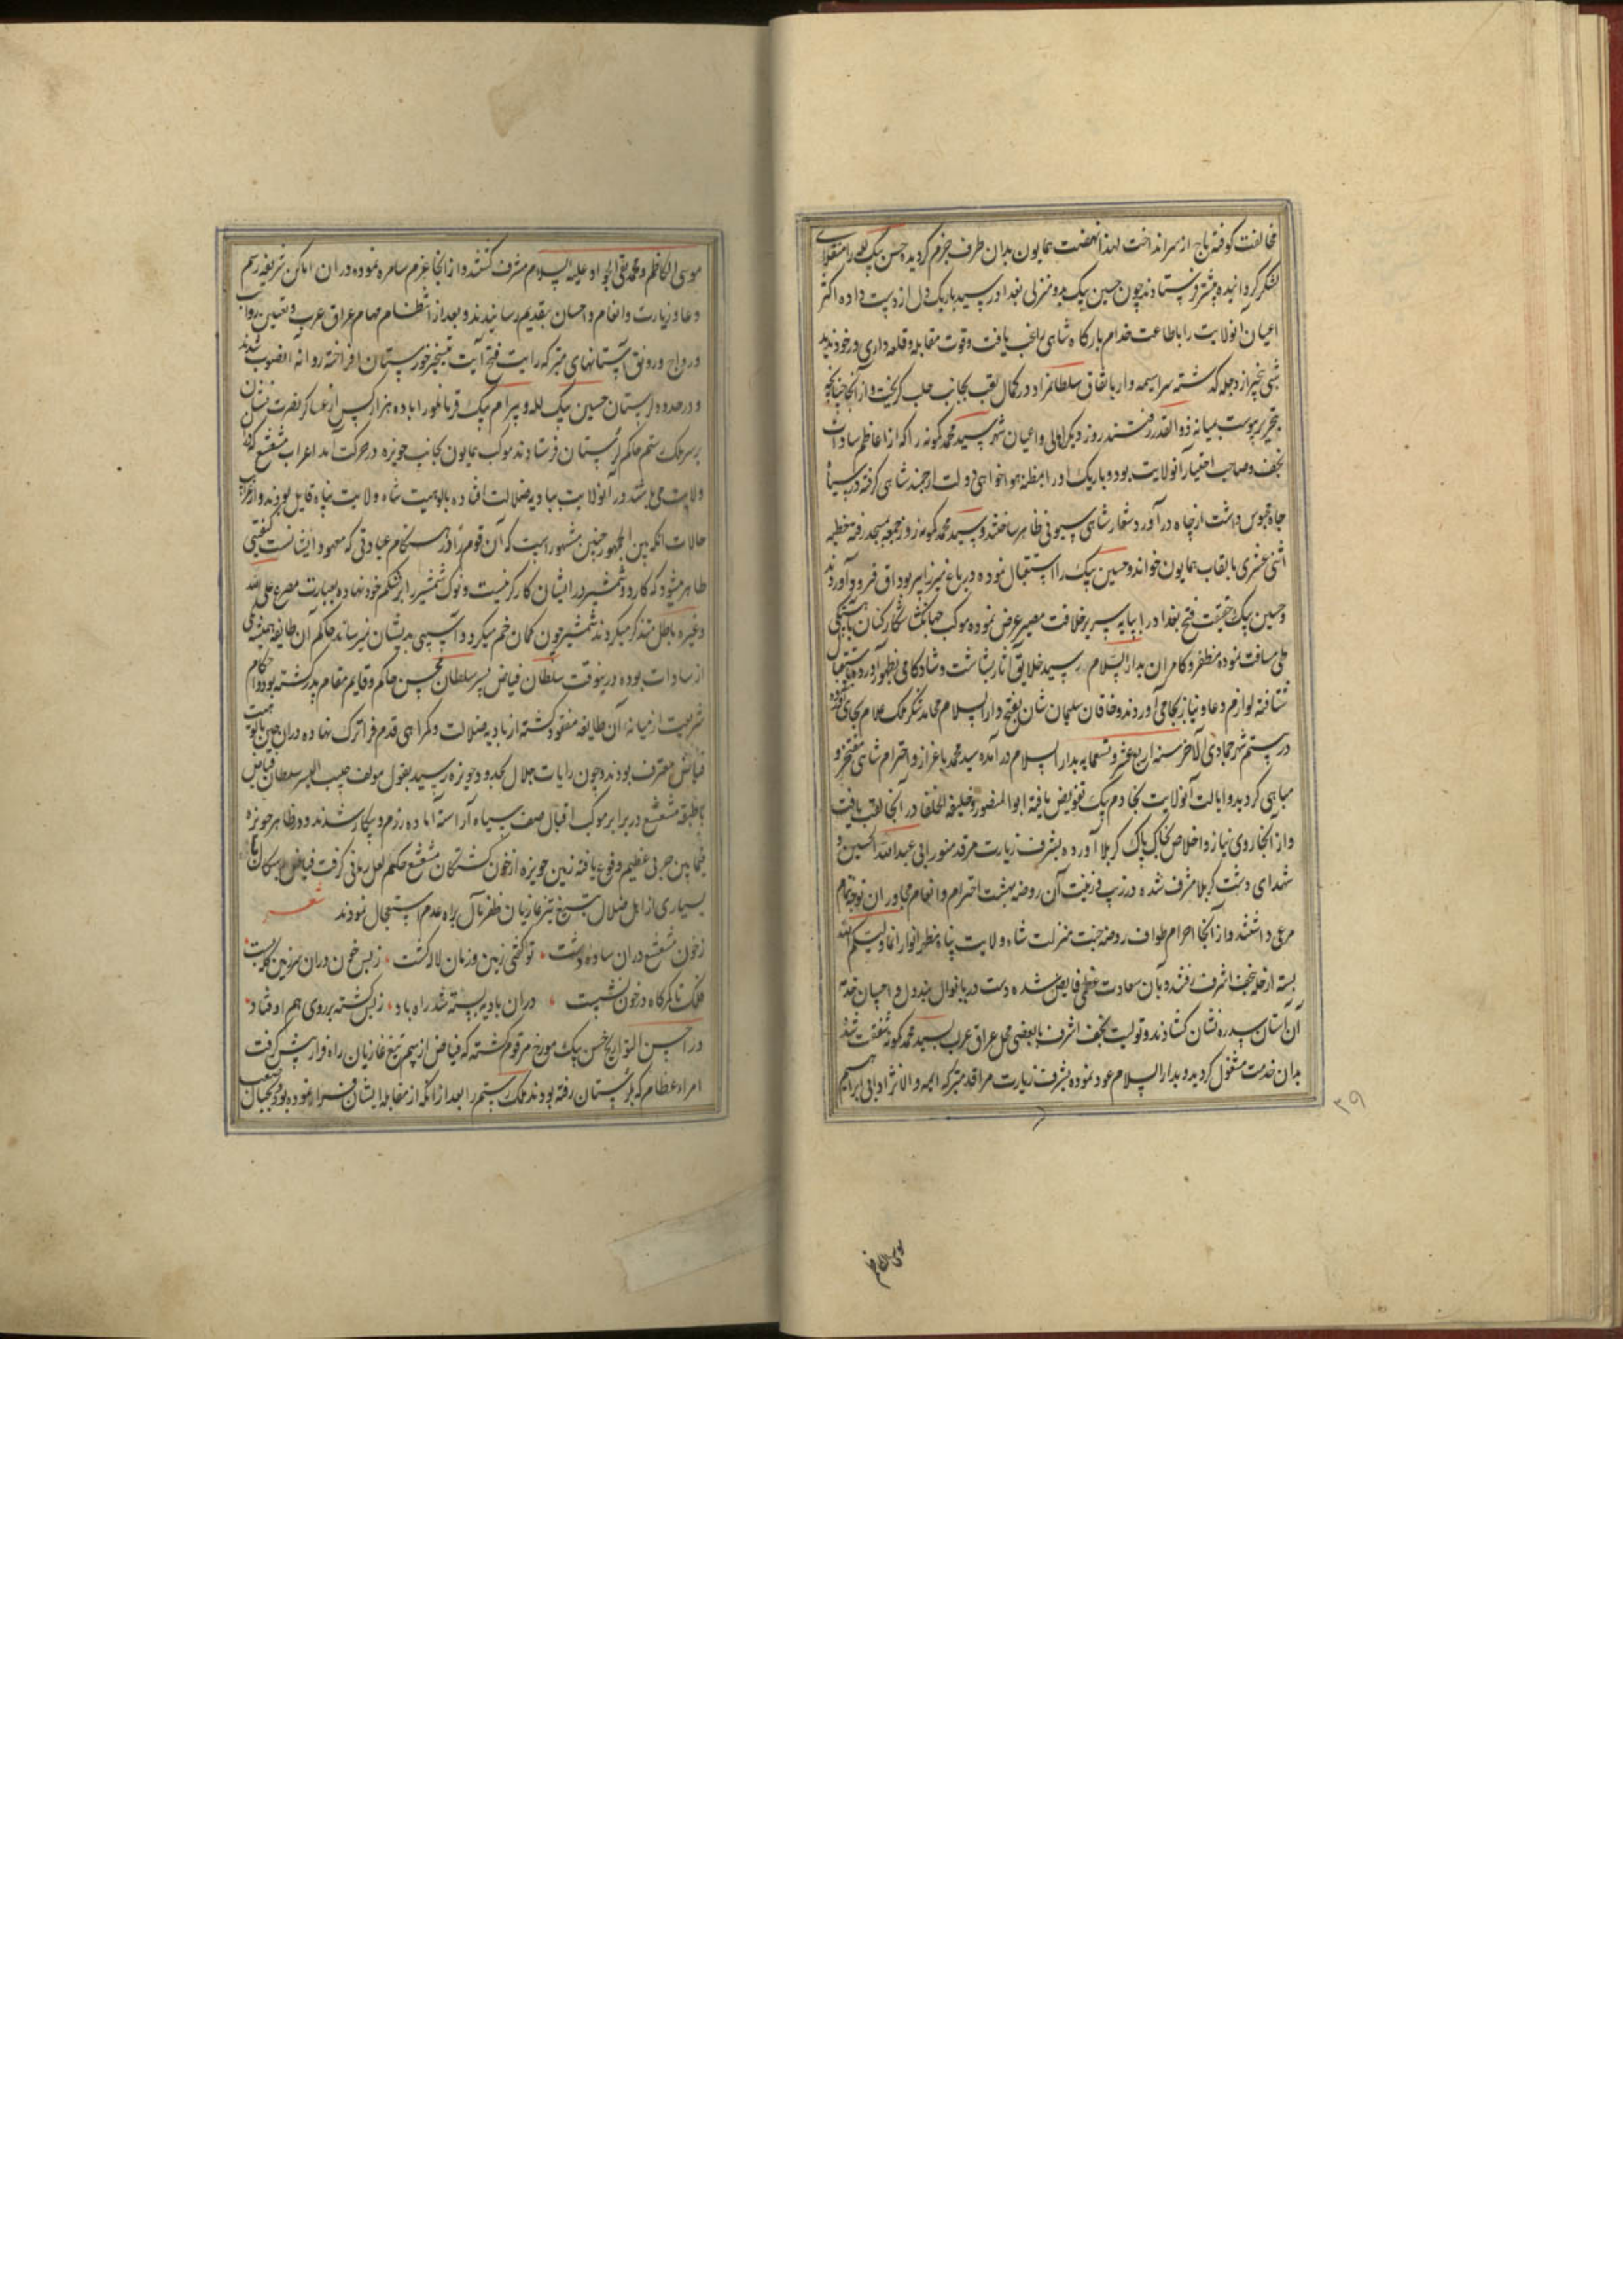 مخالفت کوفته تاج از سر انداخت لهذا نهضت همایون بدان طرف جزم گردیده حسن بیک لله را منقلای
لشکر گردانیده پیشتر فرستادند چون حسین بیک بدو منزلی بغداد رسید باریک دل از دست داده اکثر
اعیان انولایت را باطاعت خدام بارگاه شاهی راغب یافت و قوت مقابله و قلعه داری در خود ندید
شبی بیخبر از دجله گذشته سراسیمه وار باتفاق سلطانمراد در کمال تعب بجانب حلب گریخت و از آنجا چنانچه
بتحریر پیوست بمیانه ذو القدر رفتند روز دیگر اهالی و اعیان شهر سید محمد کمونه را که از اعاظم سادات
نجف و صاحب اختیار انولایت بود و باریک او را بمظنه هواخواهی دولت ارجمند شاهی گرفته در سیاه
چاه محبوس داشت از چاه در آورد و شعار شاهی سیونی ظاهر ساختند و سید محمد کمونه روز جمعه بمسجد رفته خطبه
اثنی عشری بالقاب همایون خواند و حسین بیک را استقبال نموده در باغ میرزا پیر بوداق فرود آوردند
و حسین بیک حقیقت فتح بغداد را بپایه سریر خلافت مصیر عرض نموده موکب جهانگشا شکار کنان باهستگی
طی مسافت نموده مظفر و کامران بدار السلام رسید خلایق اثار بشاشت و شادکامی بظهور آورده باستقبال
شتافته لوازم دعا و نیاز بجای آوردند و خاقان سلیمان شان بفتح دار السلام محامد شکر ملک علام بجای آورده
در بیستم شهر جمادی الآخر سنه اربع عشر و تسعمایه بدار السلام در آمده سید محمد باعزاز و احترام شاهی مفتخر و
مباهی گردید و ایالت آنولایت بخادم بیک تفویض یافته ابو المنصور و خلیفه الخلفا در آنجا لقب یافت
و از آنجا روی نیاز و اخلاص بخاک پاک کربلا آورده بشرف زیارت مرقد منور ابی عبد الله الحسین و
شهدای دشت کربلا مشرف شده در زیب و زینت آن روضه بهشت احترام و انعام مجاوران توجه تمام
مرعی داشتند و از آنجا احرام طواف روضه جنت منزلت شاه ولایت پناه مظهر انوار انما ولیکم الله
بسته از حله بنجف اشرف رفتند و بان سعادت عظمی فایض شده دست دریا نوال ببذل و احسان خدمه
آن آستان سدره نشان گشادند و تولیت نجف اشرف با بعضی محل عراق عرب بسید محمد کمونه شفقت شد
بدان خدمت مشغول گردید و بدار السلام عود نموده بشرف زیارت مراقد متبرکه ائمه والانژاد ابی ابراهیم
۳۹
موسی الکاظم
موسی الکاظم و محمد تقی الجواد علیه السلام مشرف گشتند و از آنجا عزم سامره نموده در ان اماکن شریفه رسم
دعا و زیارت و انعام و احسان بتقدیم رسانیدند و بعد از انتظام مهام عراق عرب و تعیین رواتب
و رواج و رونق آستانهای متبرکه رایت فتح آیت بتسخیر خوزستان افراخته روانه انصوب شدند
و در حدود لرستان حسین بیک لله و بیرام بیک قرمانلو را با ده هزار کس از عساکر نصرت نشان
بر سر ملک رستم حاکم لرستان فرستادند موکب همایون بجانب حویزه در حرکت آمد اعراب مشعشع که در
ولایت می باشند در آنولایت ببادیه ضلالت افتاده بالوهیت شاه ولایت پناه قایل بودند و از غرایب
حالات انکه بین الجمهور چنین مشهور است که آن قوم را در هنگام عبادتی که معهود ایشانست کیفیتی
ظاهر میشود که کارد و شمشیر در ایشان کارگر نیست و نوک شمشیر را بر شکم خود نهاده بعبارت مصرع علی الله
و غیره باطل متذکر میگردند شمشیر چون کمان خم میگردد و آسیبی بدیشان نمیرساند حاکم آن طایفه همیشه یکی
از سادات بوده درینوقت سلطان فیاض پسر سلطان محسن حاکم و قایم مقام پدر گشته بود و احکام
شریعت از میانه آن طایفه مفقود گشته از بادیه ضلالت و گمراهی قدم فراترک نهاده در ان حین بالوهیت
فیاض معترف بودند و چون رایات جلال بحدود حویزه رسید بقول مولف حبیب السیر سلطان فیاض
با طبقه مشعشع در برابر موکب اقبال صف سپاه آراسته آماده رزم و پیکار شدند و در ظاهر حویزه
فیما بین حربی عظیم وقوع یافته زمین حویزه از خون کشتگان مشعشع حکم لعل رمانی گرفت فیاض با
بسیاری از اهل ضلال بتیغ تیز غازیان ظفر مآل براه عدم استعجال نمودند شعر
ز خون مشعشع در ان ساده دشت ٭ تو گفتی زمین و زمان لاله گشت ٭ ز بس خون در ان سرزمین گل ببست
فلک تا کمرگاه در خون نشست ٭ در ان بادیه بسته شد راه باد ٭ ز بس کشته بر روی هم اوفتاد
در احسن التواریخ حسن بیک مورخ مرقوم گشته که فیاض از بیم تیغ غازیان راه فرار پیش گرفت
امراء عظام که بلرستان رفته بودند ملک رستم را بعد از انکه از مقابله ایشان فرار نموده بود و بجبال صعب